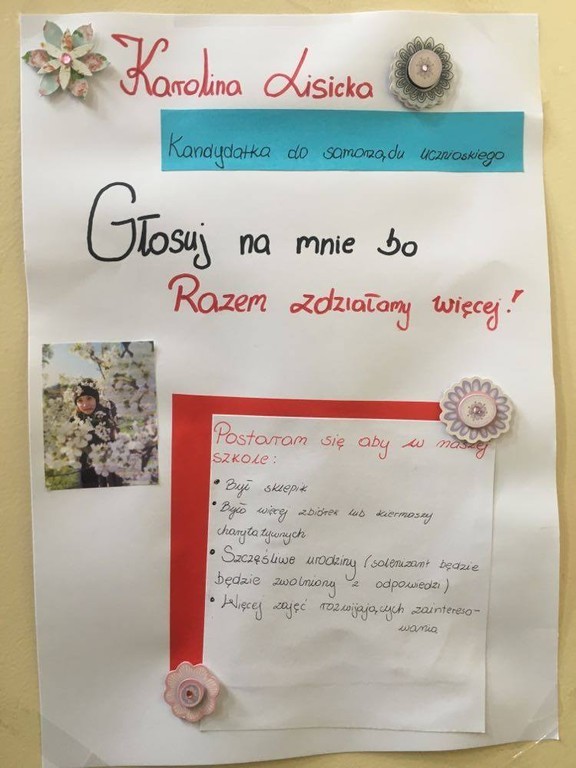 Karolina Lisicka
Kandydatka do samorządu uczniowskiego
Głosuj na mnie bo
Razem zdziałamy więcej!
Postaram się aby w naszej
szkole:
• Był sklepik
• Było więcej zbiórek lub kiermaszy
charytatywnych
• Szczęśliwe urodziny (solenizant będzie
będzie zwolniony z odpowiedzi)
• Więcej zajęć rozwijających zaintereso-
wania